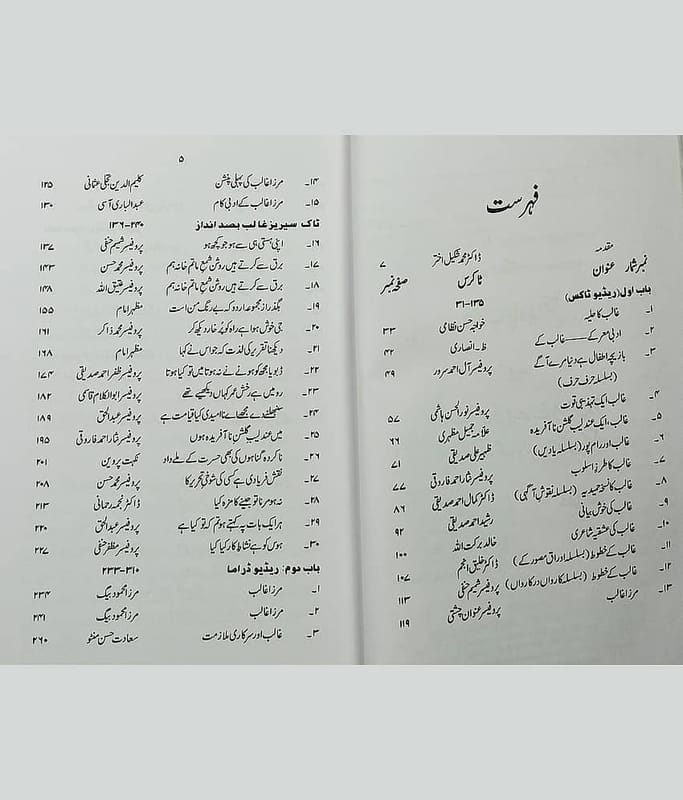 فہرست
مقدمہ ڈاکٹر محمد شکیل اختر ۷
نمبر شمار عنوان ٹاکرس صفحہ نمبر
باب اول (ریڈیو ٹاکس) ۱۳۵-۳۱
۱۔ غالب کا حلیہ خواجہ حسن نظامی ۳۳
۲۔ ادبی معرکے——غالب کے ظ۔ انصاری ۴۲
۳۔ بازیچۂ اطفال ہے دنیا مرے آگے پروفیسر آل احمد سرور ۴۹
(بسلسلہ حرف حرف)
۴۔ غالب ایک تہذیبی قوت پروفیسر نورالحسن ہاشمی ۵۷
۵۔ غالب، ایک عندلیب گلشن نا آفریدہ علامہ جمیل مظہری ۶۶
۶۔ غالب اور رام پور (بسلسلہ یادیں) ظہیر علی صدیقی ۷۱
۷۔ غالب کا طرز اسلوب پروفیسر نثار احمد فاروقی ۷۷
۸۔ غالب کا نسخۂ حمیدیہ (بسلسلہ نقوش آگہی) ڈاکٹر کمال احمد صدیقی ۸۶
۹۔ غالب کی خوش بیانی رشید احمد صدیقی ۹۲
۱۰۔ غالب کی عشقیہ شاعری خالد برکت اللہ ۱۰۰
۱۱۔ غالب کے خطوط (بسلسلہ اوراق مصور کے) ڈاکٹر خلیق انجم ۱۰۷
۱۲۔ غالب کے خطوط (بسلسلہ کارواں در کارواں) پروفیسر شمیم حنفی ۱۱۳
۱۳۔ مرزا غالب پروفیسر عنوان چشتی ۱۱۹
۵
۱۴۔ مرزا غالب کی پہلی پنشن کلیم الدین تجلی عثمانی ۱۲۵
۱۵۔ مرزا غالب کے ادبی کام عبدالباری آسی ۱۳۰
ٹاک سیریز غالب بصد انداز ۲۴۰-۱۳۶
۱۶۔ اپنی ہستی ہی سے ہو جو کچھ ہو پروفیسر شمیم حنفی ۱۳۷
۱۷۔ برق سے کرتے ہیں روشن شمع ماتم خانہ ہم پروفیسر محمد حسن ۱۴۳
۱۸۔ برق سے کرتے ہیں روشن شمع ماتم خانہ ہم پروفیسر عتیق اللہ ۱۴۸
۱۹۔ بگذر از مجموعہ اردو کہ بے رنگ من است مظہر امام ۱۵۵
۲۰۔ جی خوش ہوا ہے راہ کو پُر خار دیکھ کر پروفیسر محمد ذاکر ۱۶۱
۲۱۔ دیکھنا تقریر کی لذت کہ جو اس نے کہا مظہر امام ۱۶۸
۲۲۔ ڈبویا مجھ کو ہونے نے نہ ہوتا میں تو کیا ہوتا پروفیسر ظفر احمد صدیقی ۱۷۴
۲۳۔ رو میں ہے رخش عمر کہاں دیکھیے تھمے پروفیسر ابوالکلام قاسمی ۱۸۲
۲۴۔ سنبھلنے دے مجھے اے نا امیدی کیا قیامت ہے پروفیسر عبدالحق ۱۸۹
۲۵۔ میں عندلیب گلشن نا آفریدہ ہوں پروفیسر نثار احمد فاروقی ۱۹۵
۲۶۔ ناکردہ گناہوں کی بھی حسرت کے ملے داد نکہت پروین ۲۰۱
۲۷۔ نقش فریادی ہے کس کی شوخی تحریر کا پروفیسر محمد حسن ۲۰۸
۲۸۔ نہ ہو مرنا تو جینے کا مزہ کیا ڈاکٹر نجمہ رحمانی ۲۱۳
۲۹۔ ہر ایک بات پہ کہتے ہو تم کہ تو کیا ہے پروفیسر عبدالحق ۲۲۰
۳۰۔ ہوس کو ہے نشاط کار کیا کیا پروفیسر مظفر حنفی ۲۲۷
باب دوم: ریڈیو ڈراما ۳۱۰-۲۳۳
۱۔ مرزا غالب مرزا محمود بیگ ۲۳۴
۲۔ مرزا غالب مرزا محمود بیگ ۲۴۱
۳۔ غالب اور سرکاری ملازمت سعادت حسن منٹو ۲۶۰